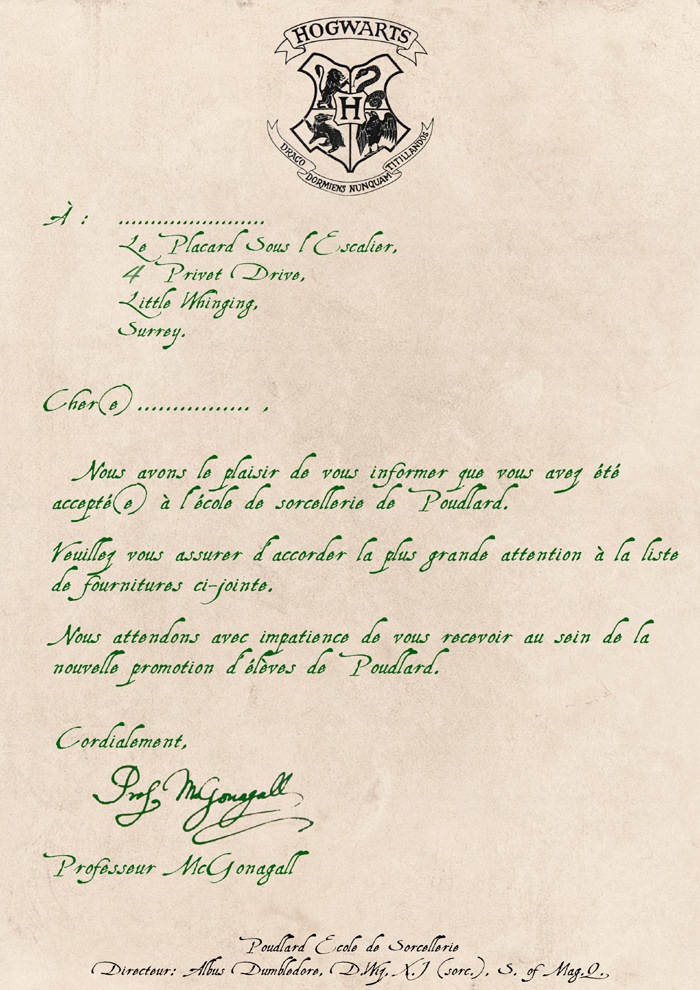 HOGWARTS
H
DRACO DORMIENS NUNQUAM TITILLANDUS
À : ......................
Le Placard Sous l'Escalier,
4 Privet Drive,
Little Whinging,
Surrey.
Cher(e) ................ ,
Nous avons le plaisir de vous informer que vous avez été
accepté(e) à l'école de sorcellerie de Poudlard.
Veuillez vous assurer d'accorder la plus grande attention à la liste
de fournitures ci-jointe.
Nous attendons avec impatience de vous recevoir au sein de la
nouvelle promotion d'élèves de Poudlard.
Cordialement,
Prof. McGonagall
Professeur McGonagall
Poudlard Ecole de Sorcellerie
Directeur: Albus Dumbledore, D.Wiz, X.J (sorc.), S. of Mag.Q.